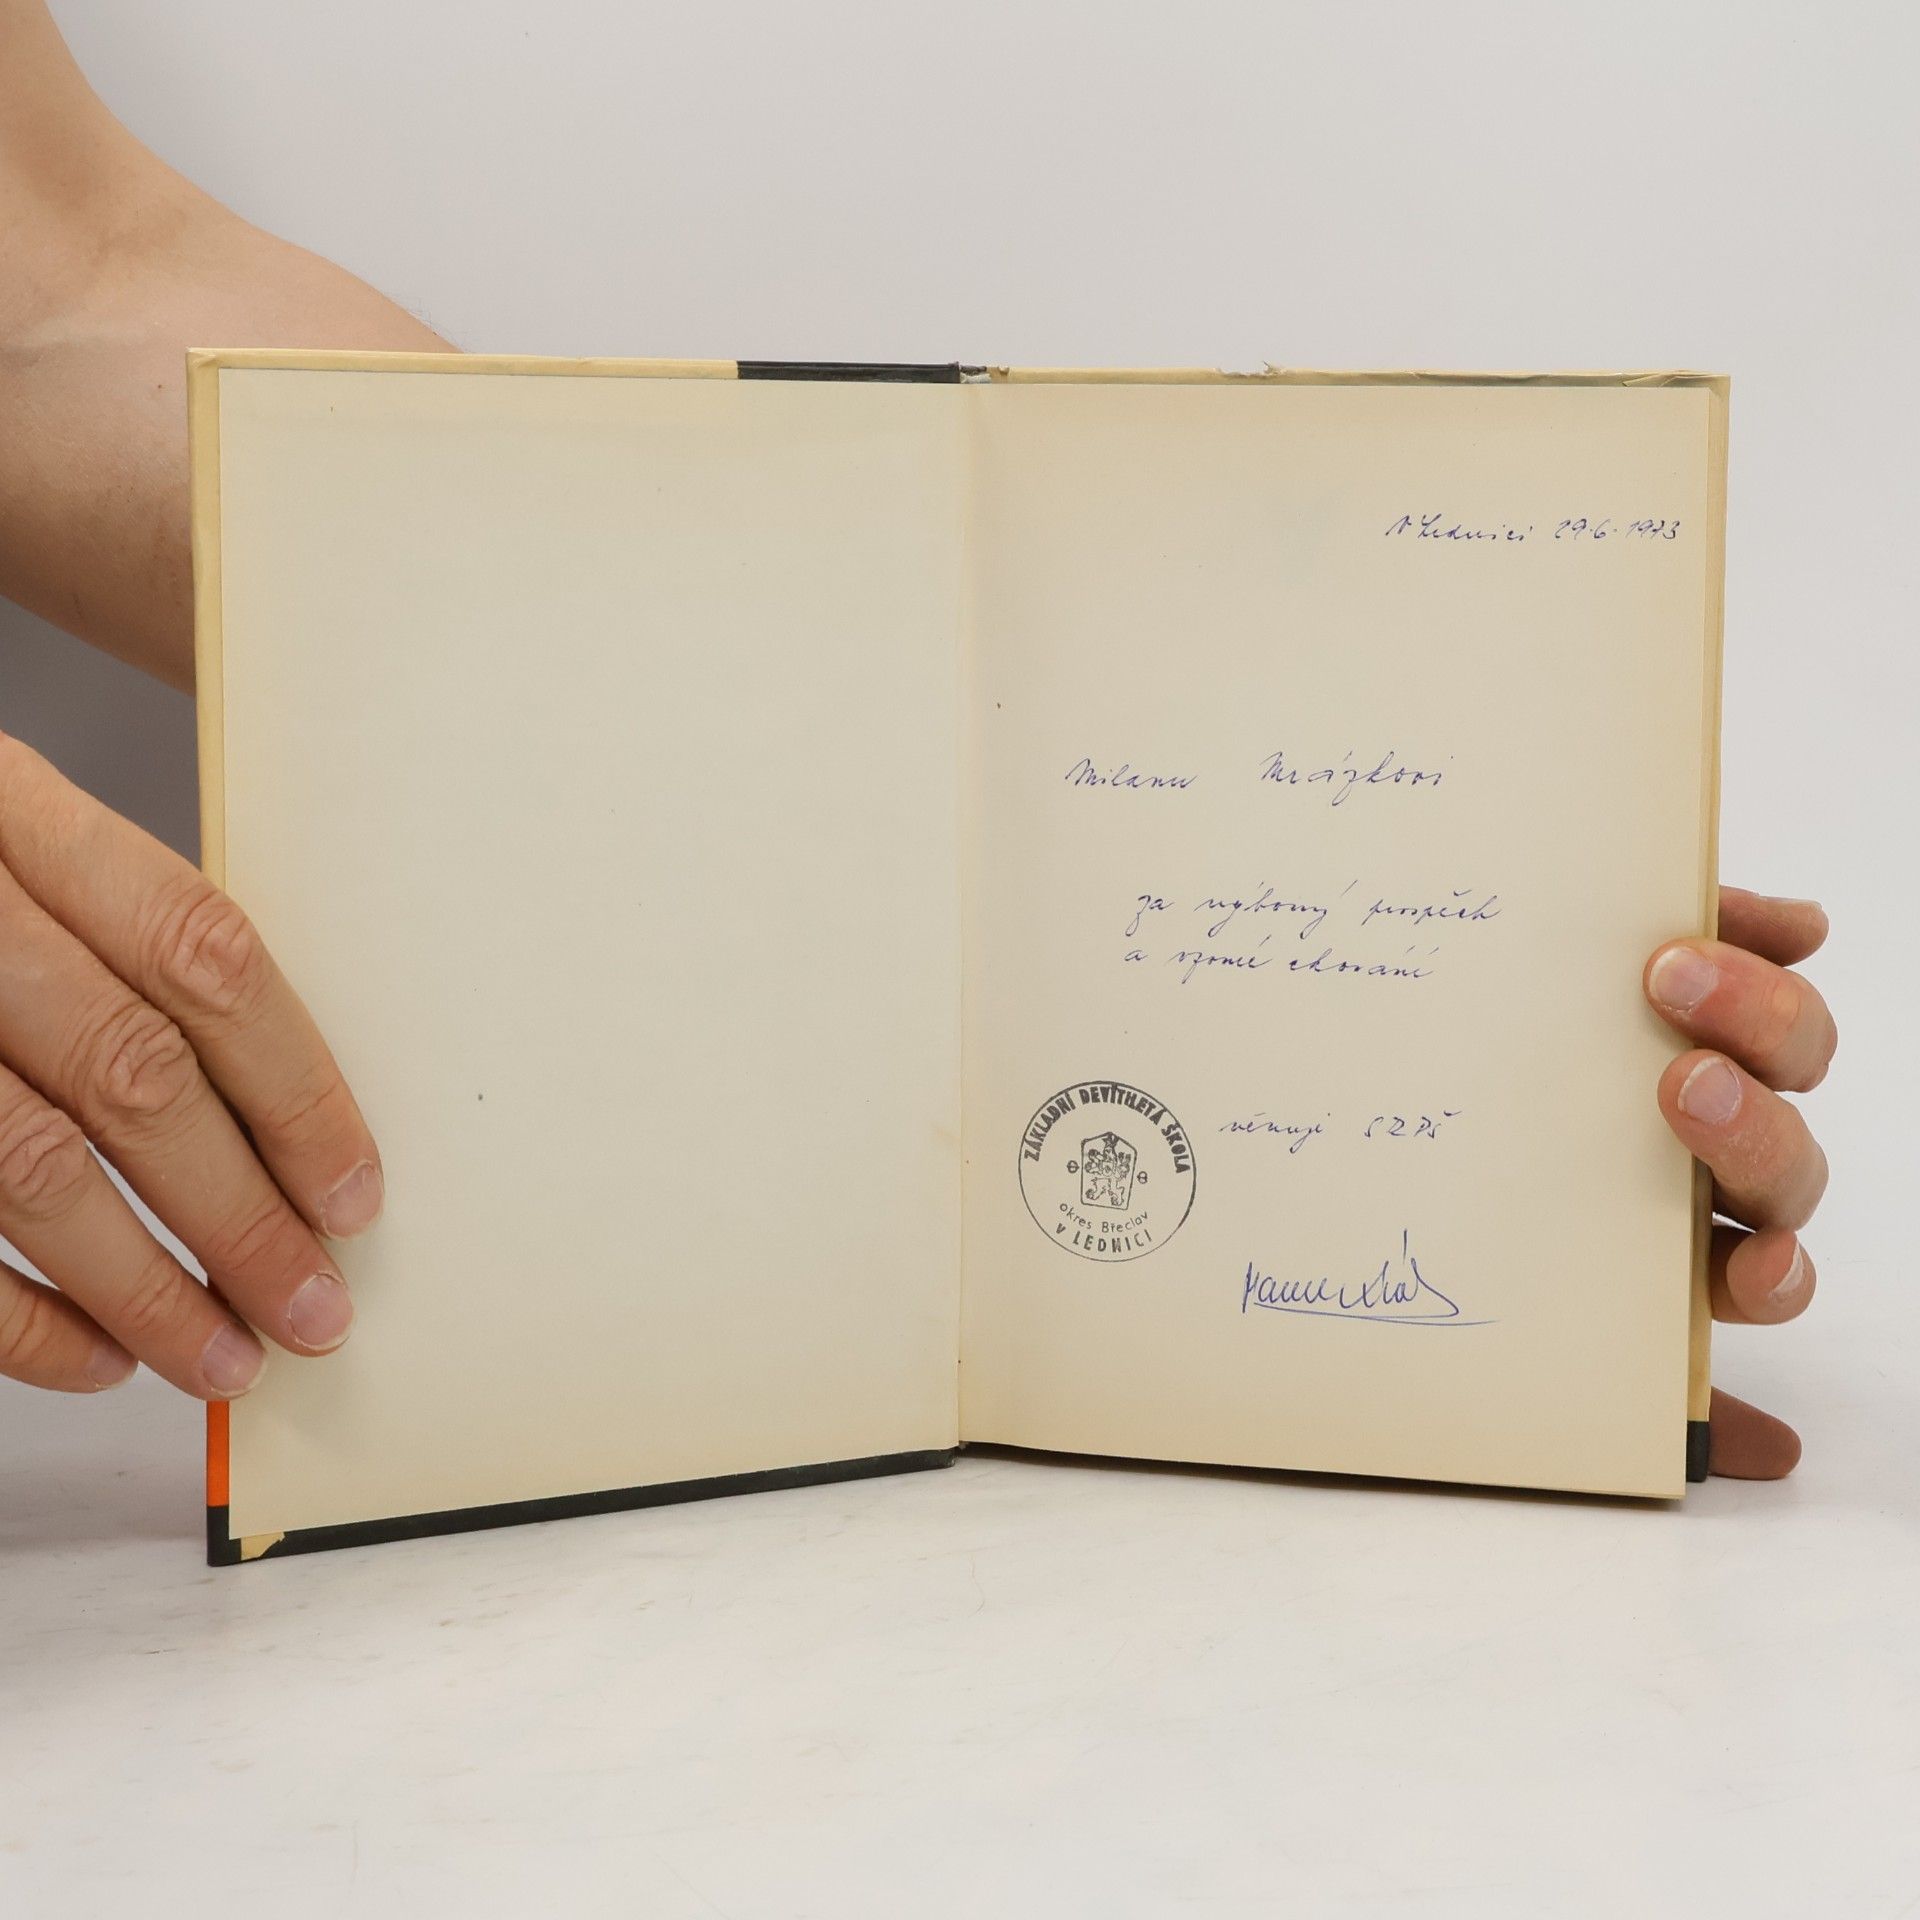 V Lednici 29.6.1973
Milanu Mrázkovi
za výborný prospěch
a vzorné chování
věnuje SRPŠ
ZÁKLADNÍ DEVÍTILETÁ ŠKOLA
okres Břeclav
V LEDNICI